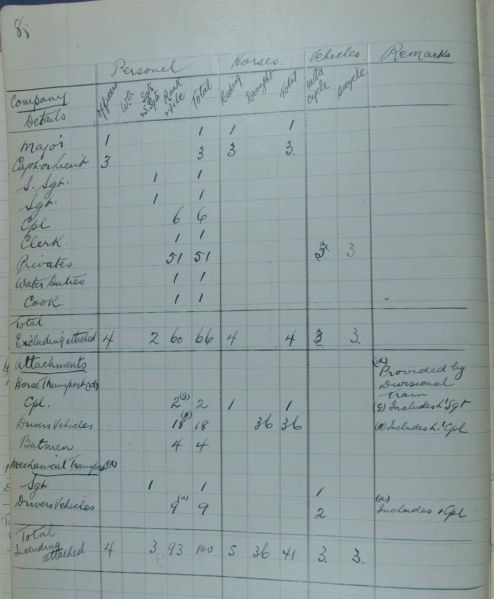 8
Personel Horses. Vehicles Remarks
Company Officers W.O. Rank & File Total Riding Draught Total Cycle Bicycle
Details
Major 1 1 1 1
Capt or Lieut 3 3 3 3.
S. Sgt. 1 1
Sgt. 1 1
Cpl 6 6
Clerk. 1 1
Privates 51 51 3 3
Water Duties 1 1
Cook. 1 1
Total
Excluding attached 4 2 60 66 4 4 3 3.
Attachments (d)
Horse Transport (d) Provided by
Divisional
Train
Cpl. 2 (g) 2 1 1 (g) Includes 1 Sgt
Drivers Vehicles 18 18 36 36 Includes 1 Cpl
Batmen 4 4
Mechanical Transport
Sgt 1 1 1
Drivers Vehicles 9 (a) 9 2 (a)
Includes 1 Cpl
Total
Including
attached 4 3 93 100 5 36 41 3. 3.